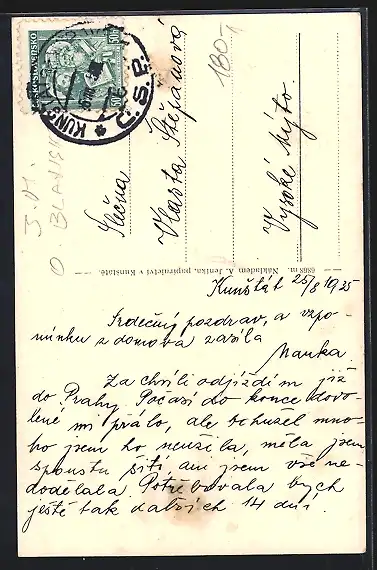 ČESKOSLOVENSKO
50 50
KUNŠTÁT
Č.S.P.
180-
J.M.
O. BLANSK
Slečna
Vlasta Štěpánová
Vysoké Mýto.
6869 m. Nákladem A. Jeníka, papírnictví v Kunštátě.
Kunštát 25/8 1925
Srdečný pozdrav, a vzpo-
mínku z domova zasílá
Mařka.
Za chvíli odjíždím již
do Prahy. Počasí do konce dovo-
lené mi přálo, ale bohužel mno-
ho jsem ho neužila, měla jsem
spoustu šití, ani jsem vše ne-
dodělala. Potřebovala bych
ještě tak dalších 14 dní.